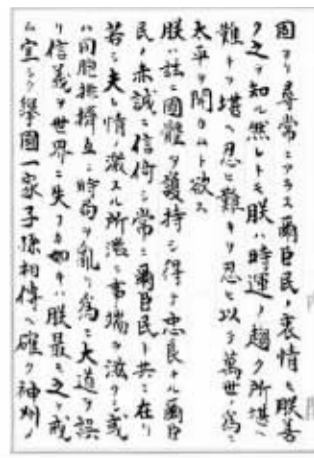 固ヨリ尋常ニアラス爾臣民ノ衷情モ朕善
ク之ヲ知ル然レトモ朕ハ時運ノ趨ク所堪ヘ
難キヲ堪ヘ忍ヒ難キヲ忍ヒ以テ萬世ノ為ニ
太平ヲ開カムト欲ス
朕ハ茲ニ國體ヲ護持シ得テ忠良ナル爾臣
民ノ赤誠ニ信倚シ常ニ爾臣民ト共ニ在リ
若シ夫レ情ノ激スル所濫ニ事端ヲ滋クシ或
ハ同胞排擠互ニ時局ヲ亂リ為ニ大道ヲ誤
リ信義ヲ世界ニ失フカ如キハ朕最モ之ヲ戒
ム宜シク擧國一家子孫相傳ヘ確ク神州ノ